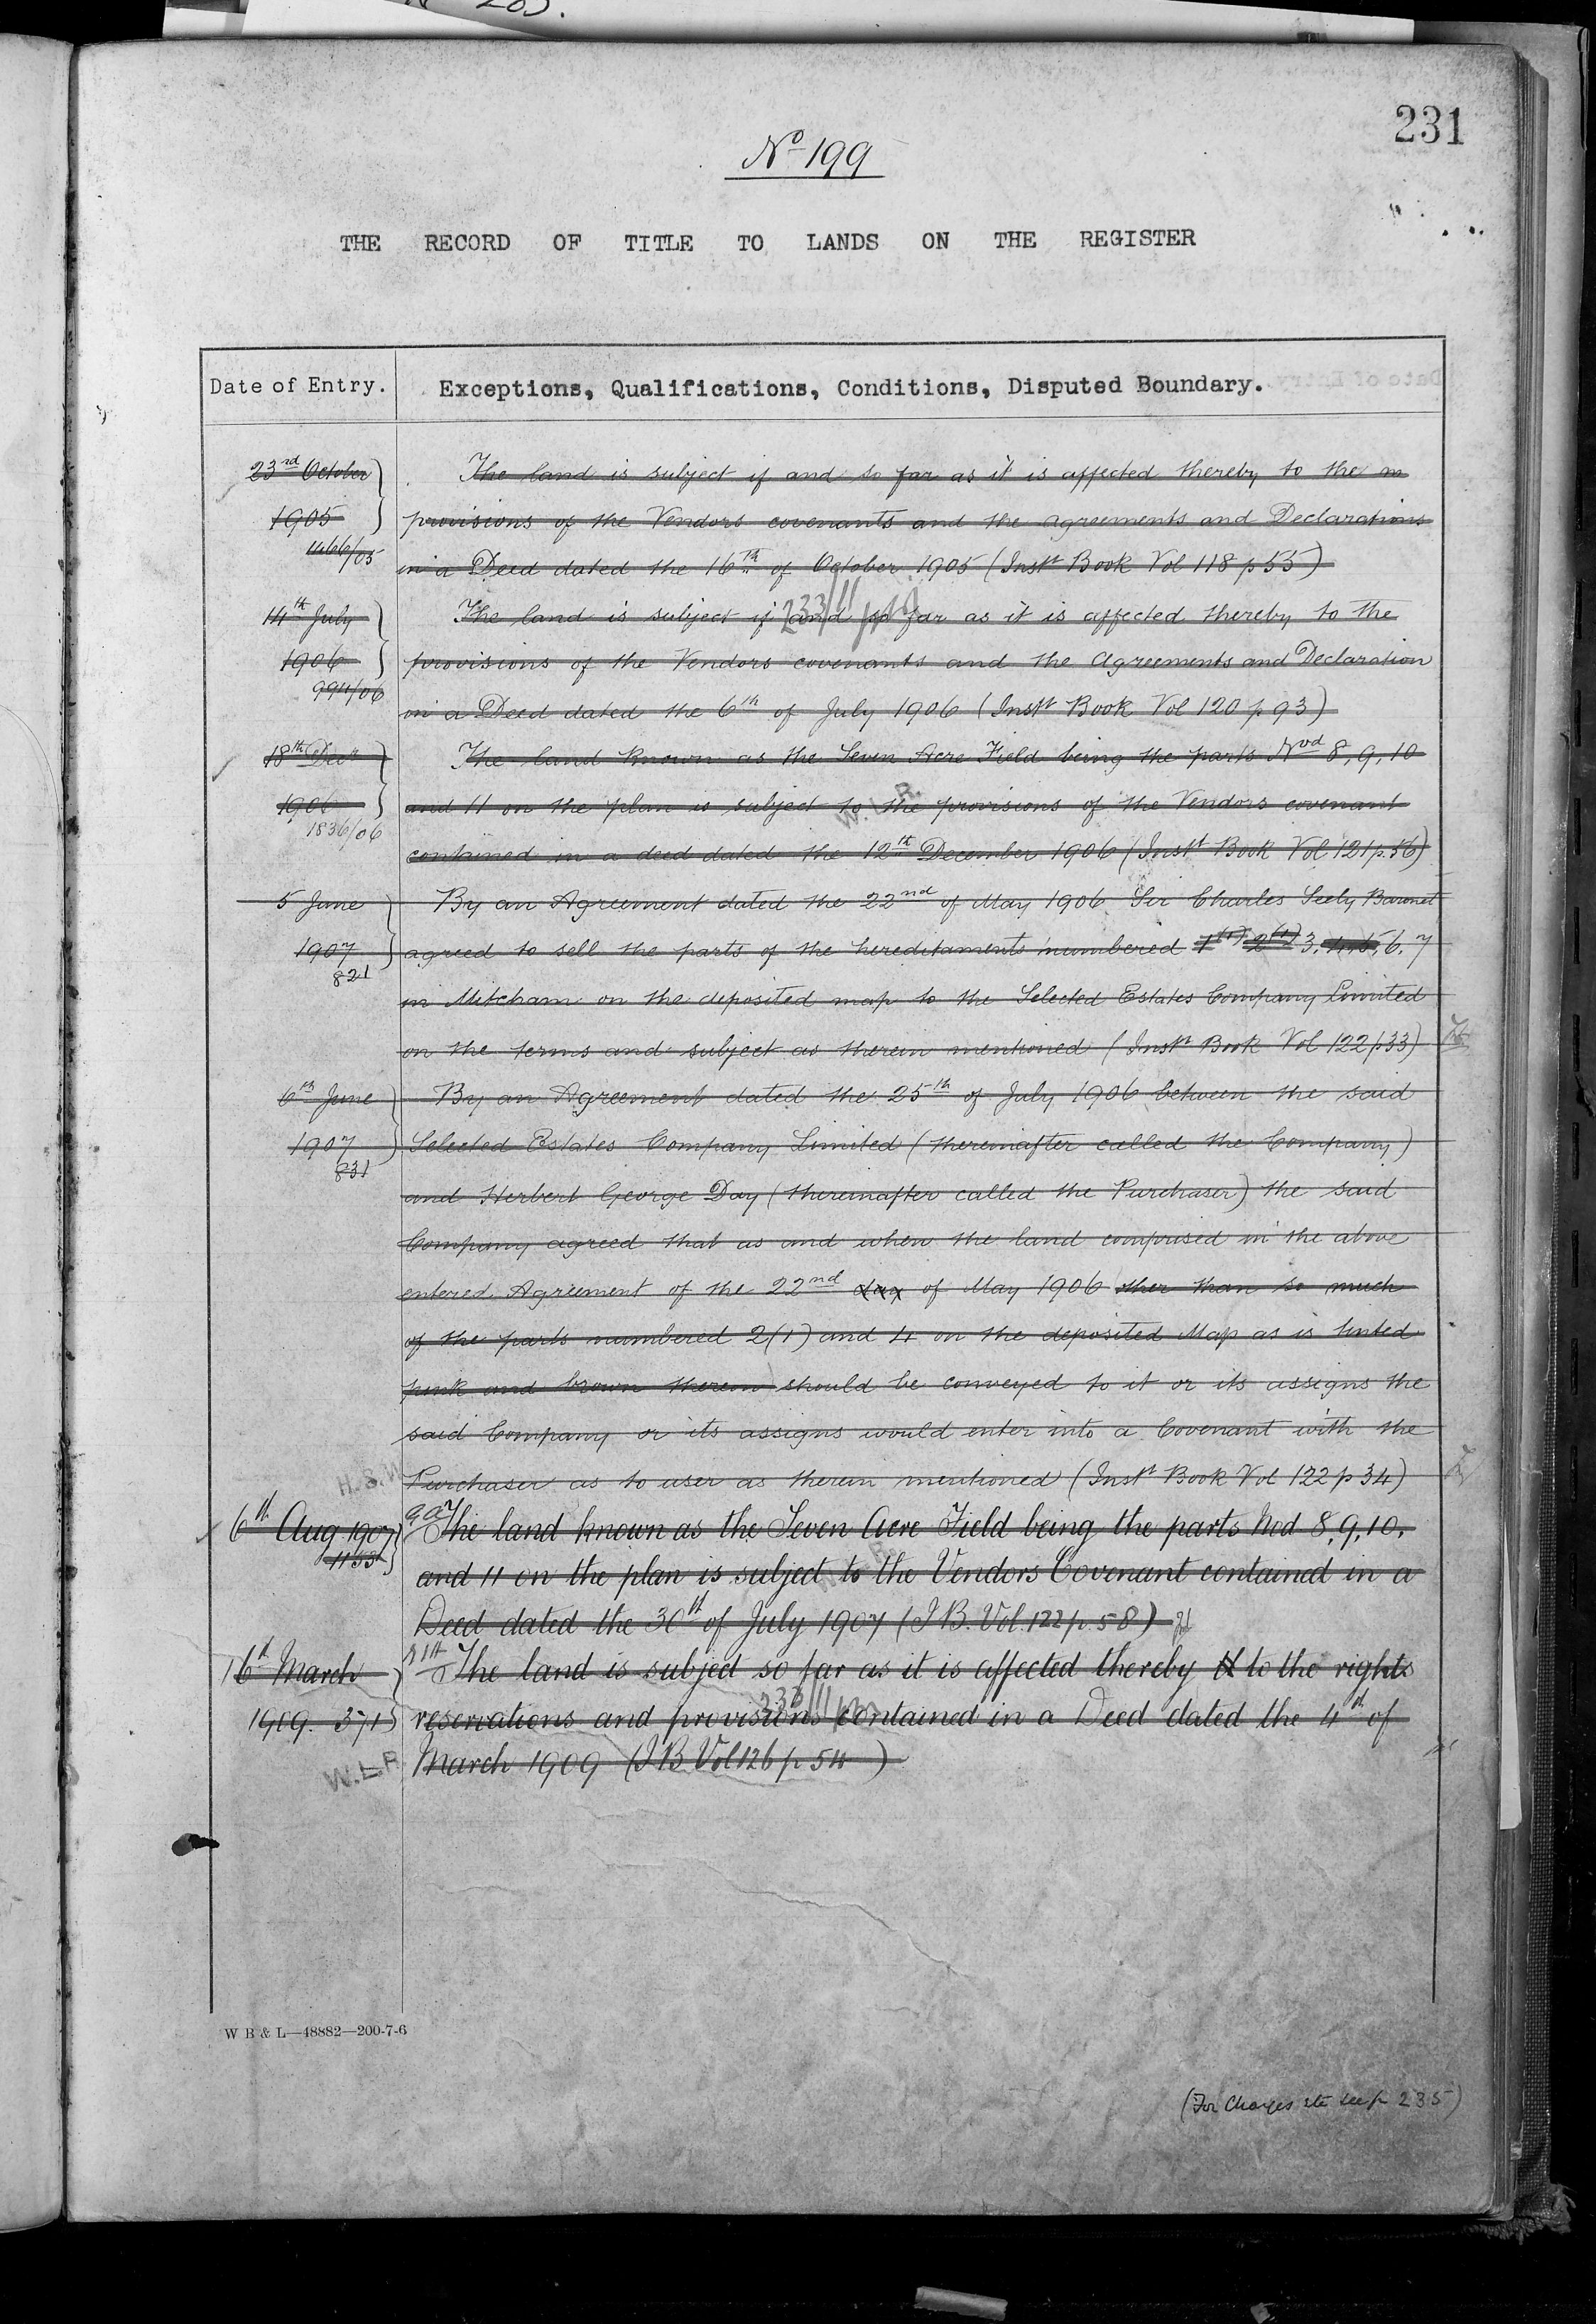 231
No 199
THE RECORD OF TITLE TO LANDS ON THE REGISTER
Date of Entry. Exceptions, Qualifications, Conditions, Disputed Boundary.
23rd October The land is subject if and so far as it is affected thereby to the
1905 provisions of the Vendors covenants and the agreements and Declarations
1466/05 in a Deed dated the 16th of October 1905 (Inst Book Vol 118 p 55)
233/11
14th July The land is subject if and so far as it is affected thereby to the
1906 provisions of the Vendors covenants and the Agreements and Declaration
994/06 in a Deed dated the 6th of July 1906 (Inst Book Vol 120 p 93)
18th Decr The land known as the Seven Acre Field being the parts Nod 8, 9, 10
1906 and 11 on the plan is subject to the provisions of the Vendors covenant
W.L.R.
1836/06 contained in a deed dated the 12th December 1906 (Inst Book Vol 121 p. 56)
5 June By an Agreement dated the 22nd of May 1906 Sir Charles Seely Baronet
1907 agreed to sell the parts of the hereditaments numbered 1(1) 2(1) 3, 4, 5, 6, 7
821 in Mitcham on the deposited map to the Selected Estates Company Limited
on the terms and subject as therein mentioned (Inst Book Vol 122 p 33)
6th June By an Agreement dated the 25th of July 1906 between the said
1907 Selected Estates Company Limited (thereinafter called the Company)
831 and Herbert George Day (thereinafter called the Purchaser) the said
Company agreed that as and when the land comprised in the above
entered Agreement of the 22nd day of May 1906 other than so much
of the parts numbered 2(1) and 4 on the deposited Map as is tinted
pink and brown thereon should be conveyed to it or its assigns the
said Company or its assigns would enter into a Covenant with the
H.S.W. Purchaser as to user as therein mentioned (Inst Book Vol 122 p 34)
6th Aug 1907 The land known as the Seven Acre Field being the parts Nod 8, 9, 10,
1153 and 11 on the plan is subject to the Vendors Covenant contained in a
Deed dated the 30th of July 1907 (I B. Vol. 122 p. 58)
16th March The land is subject so far as it is affected thereby to the rights
233/11
1909. 371 reservations and provisions contained in a Deed dated the 4th of
W.L.R. March 1909 (I B. Vol 126 p 54)
W B & L—48882—200-7-6
(For Charges etc see p 235)